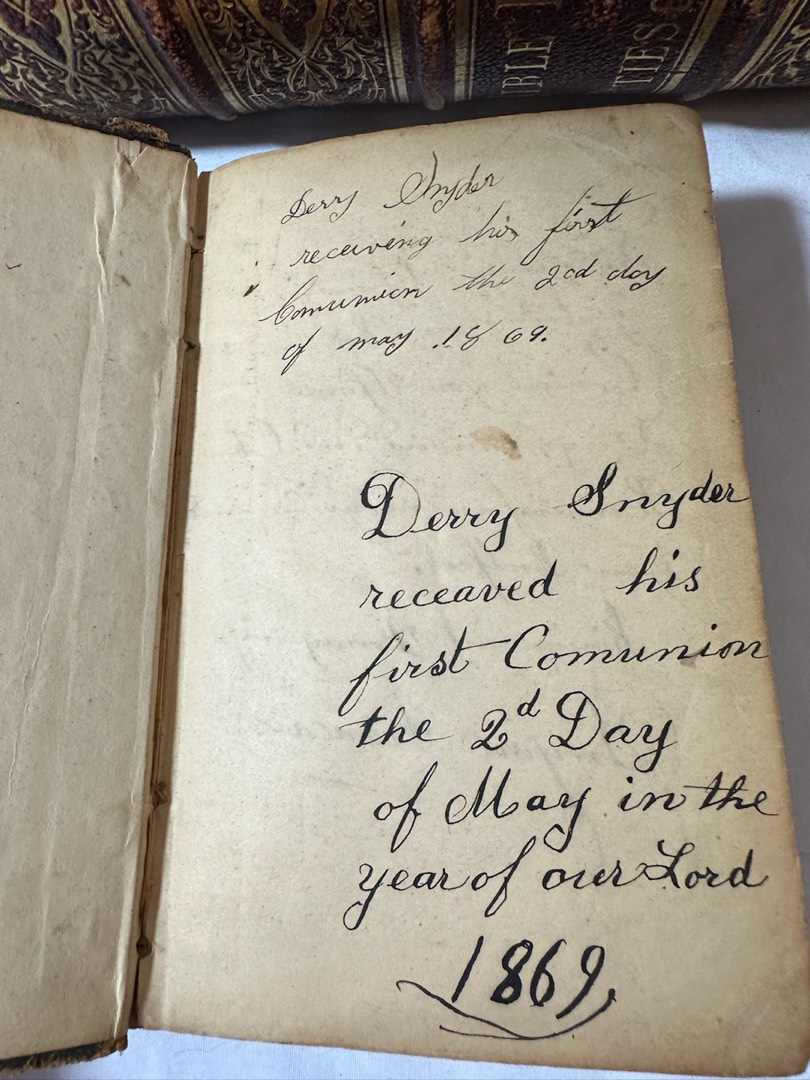 BLE
TIES
Derry Snyder
receiving his first
Comunion the 2cd day
of may .1869.
Derry Snyder
receaved his
first Comunion
the 2d Day
of May in the
year of our Lord
1869,